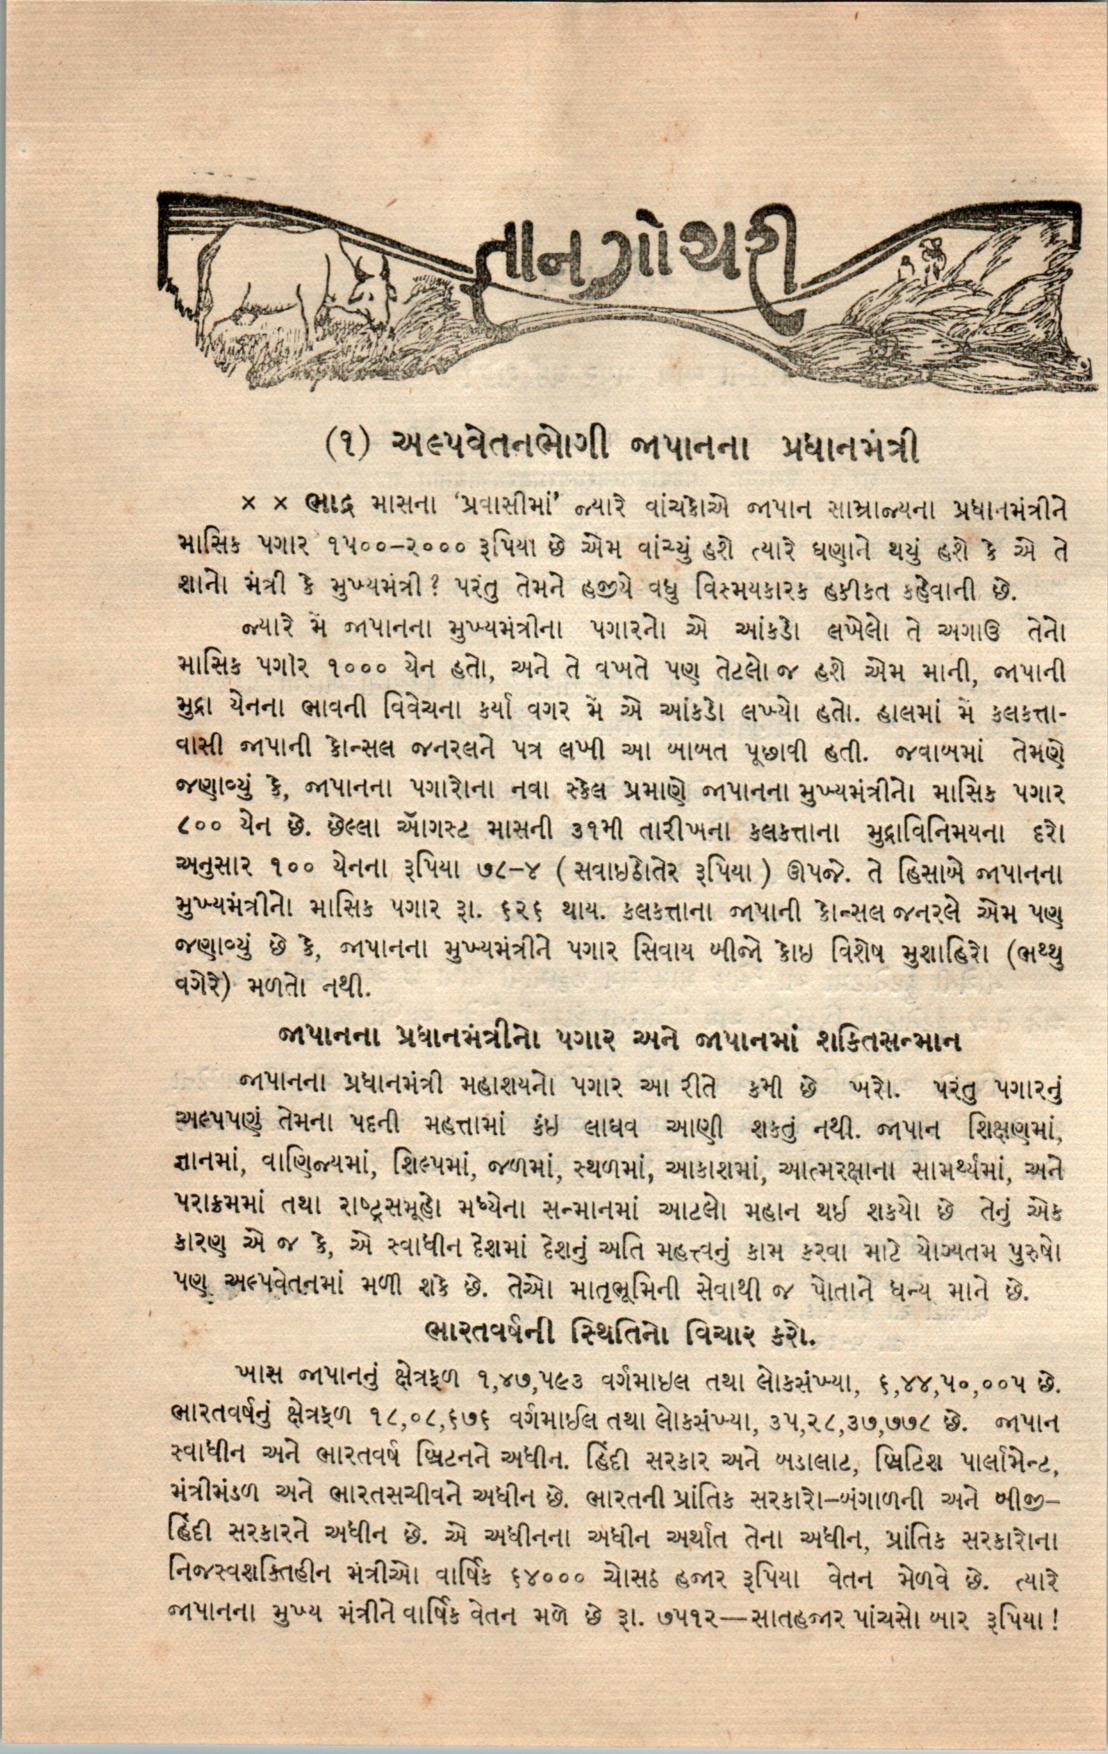 જ્ઞાન ગોચરી
(૧) અલ્પવેતનભોગી જાપાનના પ્રધાનમંત્રી
× × ભાદ્ર માસના ‘પ્રવાસીમાં’ જ્યારે વાંચકોએ જાપાન સામ્રાજ્યના પ્રધાનમંત્રીને
માસિક પગાર ૧૫૦૦–૨૦૦૦ રૂપિયા છે એમ વાંચ્યું હશે ત્યારે ઘણાને થયું હશે કે એ તે
શાનો મંત્રી કે મુખ્યમંત્રી? પરંતુ તેમને હજીયે વધુ વિસ્મયકારક હકીકત કહેવાની છે.
જ્યારે મેં જાપાનના મુખ્યમંત્રીના પગારનો એ આંકડો લખેલો તે અગાઉ તેનો
માસિક પગાર ૧૦૦૦ યેન હતો, અને તે વખતે પણ તેટલો જ હશે એમ માની, જાપાની
મુદ્રા યેનના ભાવની વિવેચના કર્યા વગર મેં એ આંકડો લખ્યો હતો. હાલમાં મેં કલકત્તા-
વાસી જાપાની કોન્સલ જનરલને પત્ર લખી આ બાબત પૂછાવી હતી. જવાબમાં તેમણે
જણાવ્યું કે, જાપાનના પગારોના નવા સ્કેલ પ્રમાણે જાપાનના મુખ્યમંત્રીનો માસિક પગાર
૮૦૦ યેન છે. છેલ્લા ઑગસ્ટ માસની ૩૧મી તારીખના કલકત્તાના મુદ્રાવિનિમયના દરો
અનુસાર ૧૦૦ યેનના રૂપિયા ૭૮–૪ ( સવાઇઠોતેર રૂપિયા ) ઊપજે. તે હિસાબે જાપાનના
મુખ્યમંત્રીનો માસિક પગાર રૂા. ૬૨૬ થાય. કલકત્તાના જાપાની કોન્સલ જનરલે એમ પણ
જણાવ્યું છે કે, જાપાનના મુખ્યમંત્રીને પગાર સિવાય બીજો કોઇ વિશેષ મુશાહિરો (ભથ્થુ
વગેરે) મળતો નથી.
જાપાનના પ્રધાનમંત્રીનો પગાર અને જાપાનમાં શક્તિસન્માન
જાપાનના પ્રધાનમંત્રી મહાશયનો પગાર આ રીતે કમી છે ખરો. પરંતુ પગારનું
અલ્પપણું તેમના પદની મહત્તામાં કંઇ લાઘવ આણી શકતું નથી. જાપાન શિક્ષણમાં,
જ્ઞાનમાં, વાણિજ્યમાં, શિલ્પમાં, જળમાં, સ્થળમાં, આકાશમાં, આત્મરક્ષાના સામર્થ્યમાં, અને
પરાક્રમમાં તથા રાષ્ટ્રસમૂહો મધ્યેના સન્માનમાં આટલો મહાન થઈ શકયો છે તેનું એક
કારણ એ જ કે, એ સ્વાધીન દેશમાં દેશનું અતિ મહત્ત્વનું કામ કરવા માટે યોગ્યતમ પુરુષો
પણ અલ્પવેતનમાં મળી શકે છે. તેઓ માતૃભૂમિની સેવાથી જ પોતાને ધન્ય માને છે.
ભારતવર્ષની સ્થિતિનો વિચાર કરો.
ખાસ જાપાનનું ક્ષેત્રફળ ૧,૪૭,૫૯૩ વર્ગમાઇલ તથા લોકસંખ્યા, ૬,૪૪,૫૦,૦૦૫ છે.
ભારતવર્ષનું ક્ષેત્રફળ ૧૮,૦૮,૬૭૬ વર્ગમાઈલ તથા લોકસંખ્યા, ૩૫,૨૮,૩૭,૭૭૮ છે. જાપાન
સ્વાધીન અને ભારતવર્ષ બ્રિટનને અધીન. હિંદી સરકાર અને બડાલાટ, બ્રિટિશ પાર્લામેન્ટ,
મંત્રીમંડળ અને ભારતસચીવને અધીન છે. ભારતની પ્રાંતિક સરકારો–બંગાળની અને બીજી–
હિંદી સરકારને અધીન છે. એ અધીનના અધીન અર્થાત તેના અધીન, પ્રાંતિક સરકારોના
નિજસ્વશક્તિહીન મંત્રીઓ વાર્ષિક ૬૪૦૦૦ ચોસઠ હજાર રૂપિયા વેતન મેળવે છે. ત્યારે
જાપાનના મુખ્ય મંત્રીને વાર્ષિક વેતન મળે છે રૂા. ૭૫૧૨—સાતહજાર પાંચસો બાર રૂપિયા!